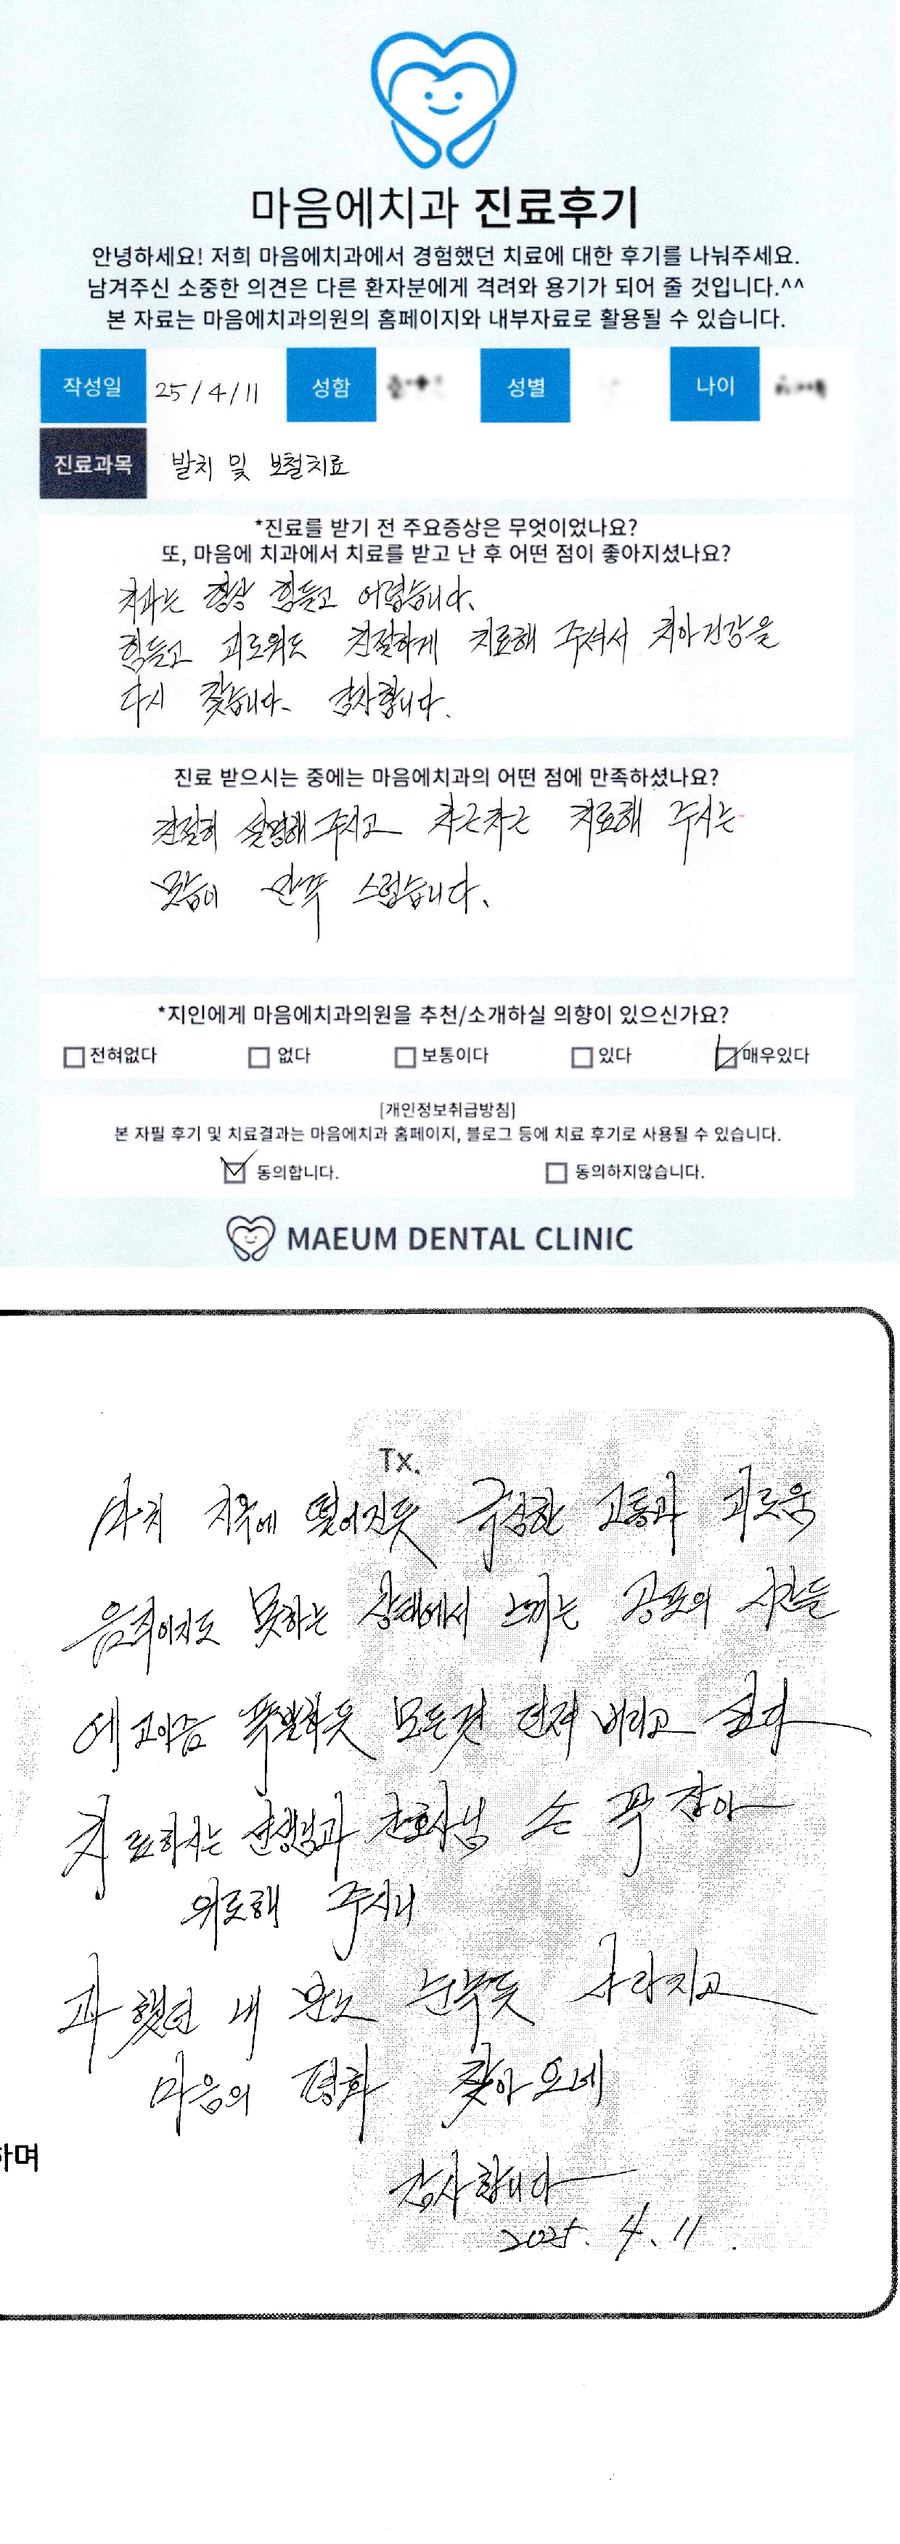 마음에치과 진료후기
안녕하세요! 저희 마음에치과에서 경험했던 치료에 대한 후기를 나눠주세요.
남겨주신 소중한 의견은 다른 환자분에게 격려와 용기가 되어 줄 것입니다.^^
본 자료는 마음에치과의원의 홈페이지와 내부자료로 활용될 수 있습니다.
작성일 25/4/11 성함 성별 나이
진료과목 발치 및 보철치료
*진료를 받기 전 주요증상은 무엇이었나요?
또, 마음에 치과에서 치료를 받고 난 후 어떤 점이 좋아지셨나요?
치과는 항상 힘들고 어렵습니다.
힘들고 괴로워도 친절하게 치료해 주셔서 치아건강을
다시 찾습니다. 감사합니다.
진료 받으시는 중에는 마음에치과의 어떤 점에 만족하셨나요?
친절히 설명해 주시고 차근차근 치료해 주시는
모습이 만족 스럽습니다.
*지인에게 마음에치과의원을 추천/소개하실 의향이 있으신가요?
전혀없다 없다 보통이다 있다 매우있다
[개인정보취급방침]
본 자필 후기 및 치료결과는 마음에치과 홈페이지, 블로그 등에 치료 후기로 사용될 수 있습니다.
동의합니다. 동의하지않습니다.
MAEUM DENTAL CLINIC
Tx.
마치 지옥에 떨어진듯 극심한 고통과 괴로움
움직이지도 못하는 상태에서 느끼는 공포의 시간들
폭발하듯 모든것 던져 버리고 싶다
치료하시는 선생님과 간호사님 손 꼭 잡아
위로해 주시니
했던 내 눈녹듯 사라지고
마음의 평화 찾아 오네
하며
감사합니다
2025. 4. 11.